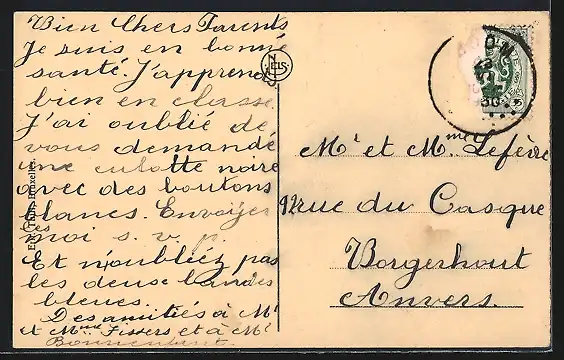 Bien Chers Parents
Je suis en bonne
santé. J'apprend
bien en classe
J'ai oublié de
vous demandé
une culotte noire
avec des boutons
blancs. Envoyer
les
moi s. v. p.
Et n'oubliez pas
les deuse bandes
bleues.
Des amitiés à Mr
et Mme Fissers et à Mr
Bonnenfant.
NELS
ARLON
30
Mr et Mme Lefèvre
12 rue du Casque
Borgerhout
Anvers.
Bruxelles.